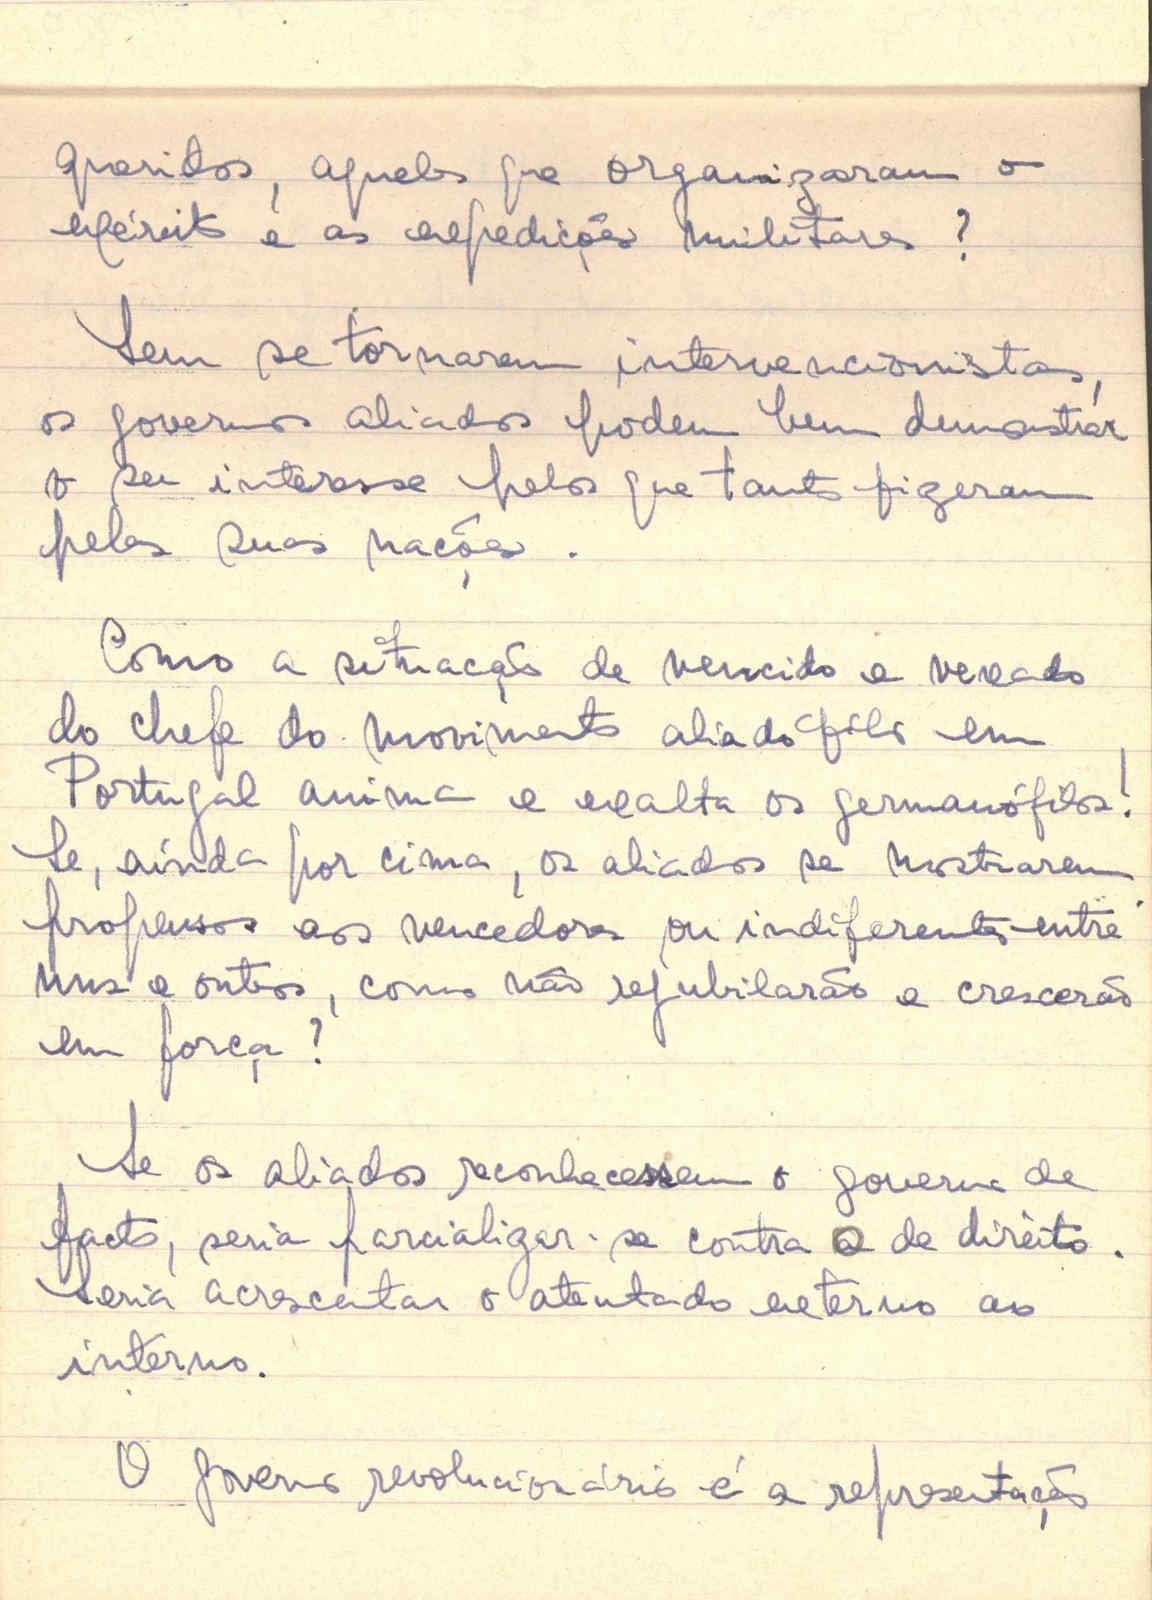 queridos, aqueles que organizaram o
exército e as expedições militares?
Sem se tornarem intervencionistas,
os governos aliados podem bem demonstrar
o seu interesse pelos que tanto fizeram
pelas suas nações.
Como a situação de vencido e vexado
do chefe do movimento aliadófilo em
Portugal anima e exalta os germanófilos!
Se, ainda por cima, os aliados se mostrarem
propensos aos vencedores ou indiferentes entre
uns e outros, como não rejubilarão e crescerão
em força?
Se os aliados reconhecessem o governo de
facto, seria parcializar-se contra o de direito.
Seria acrescentar o atentado externo ao
interno.
O governo revolucionário é a representação